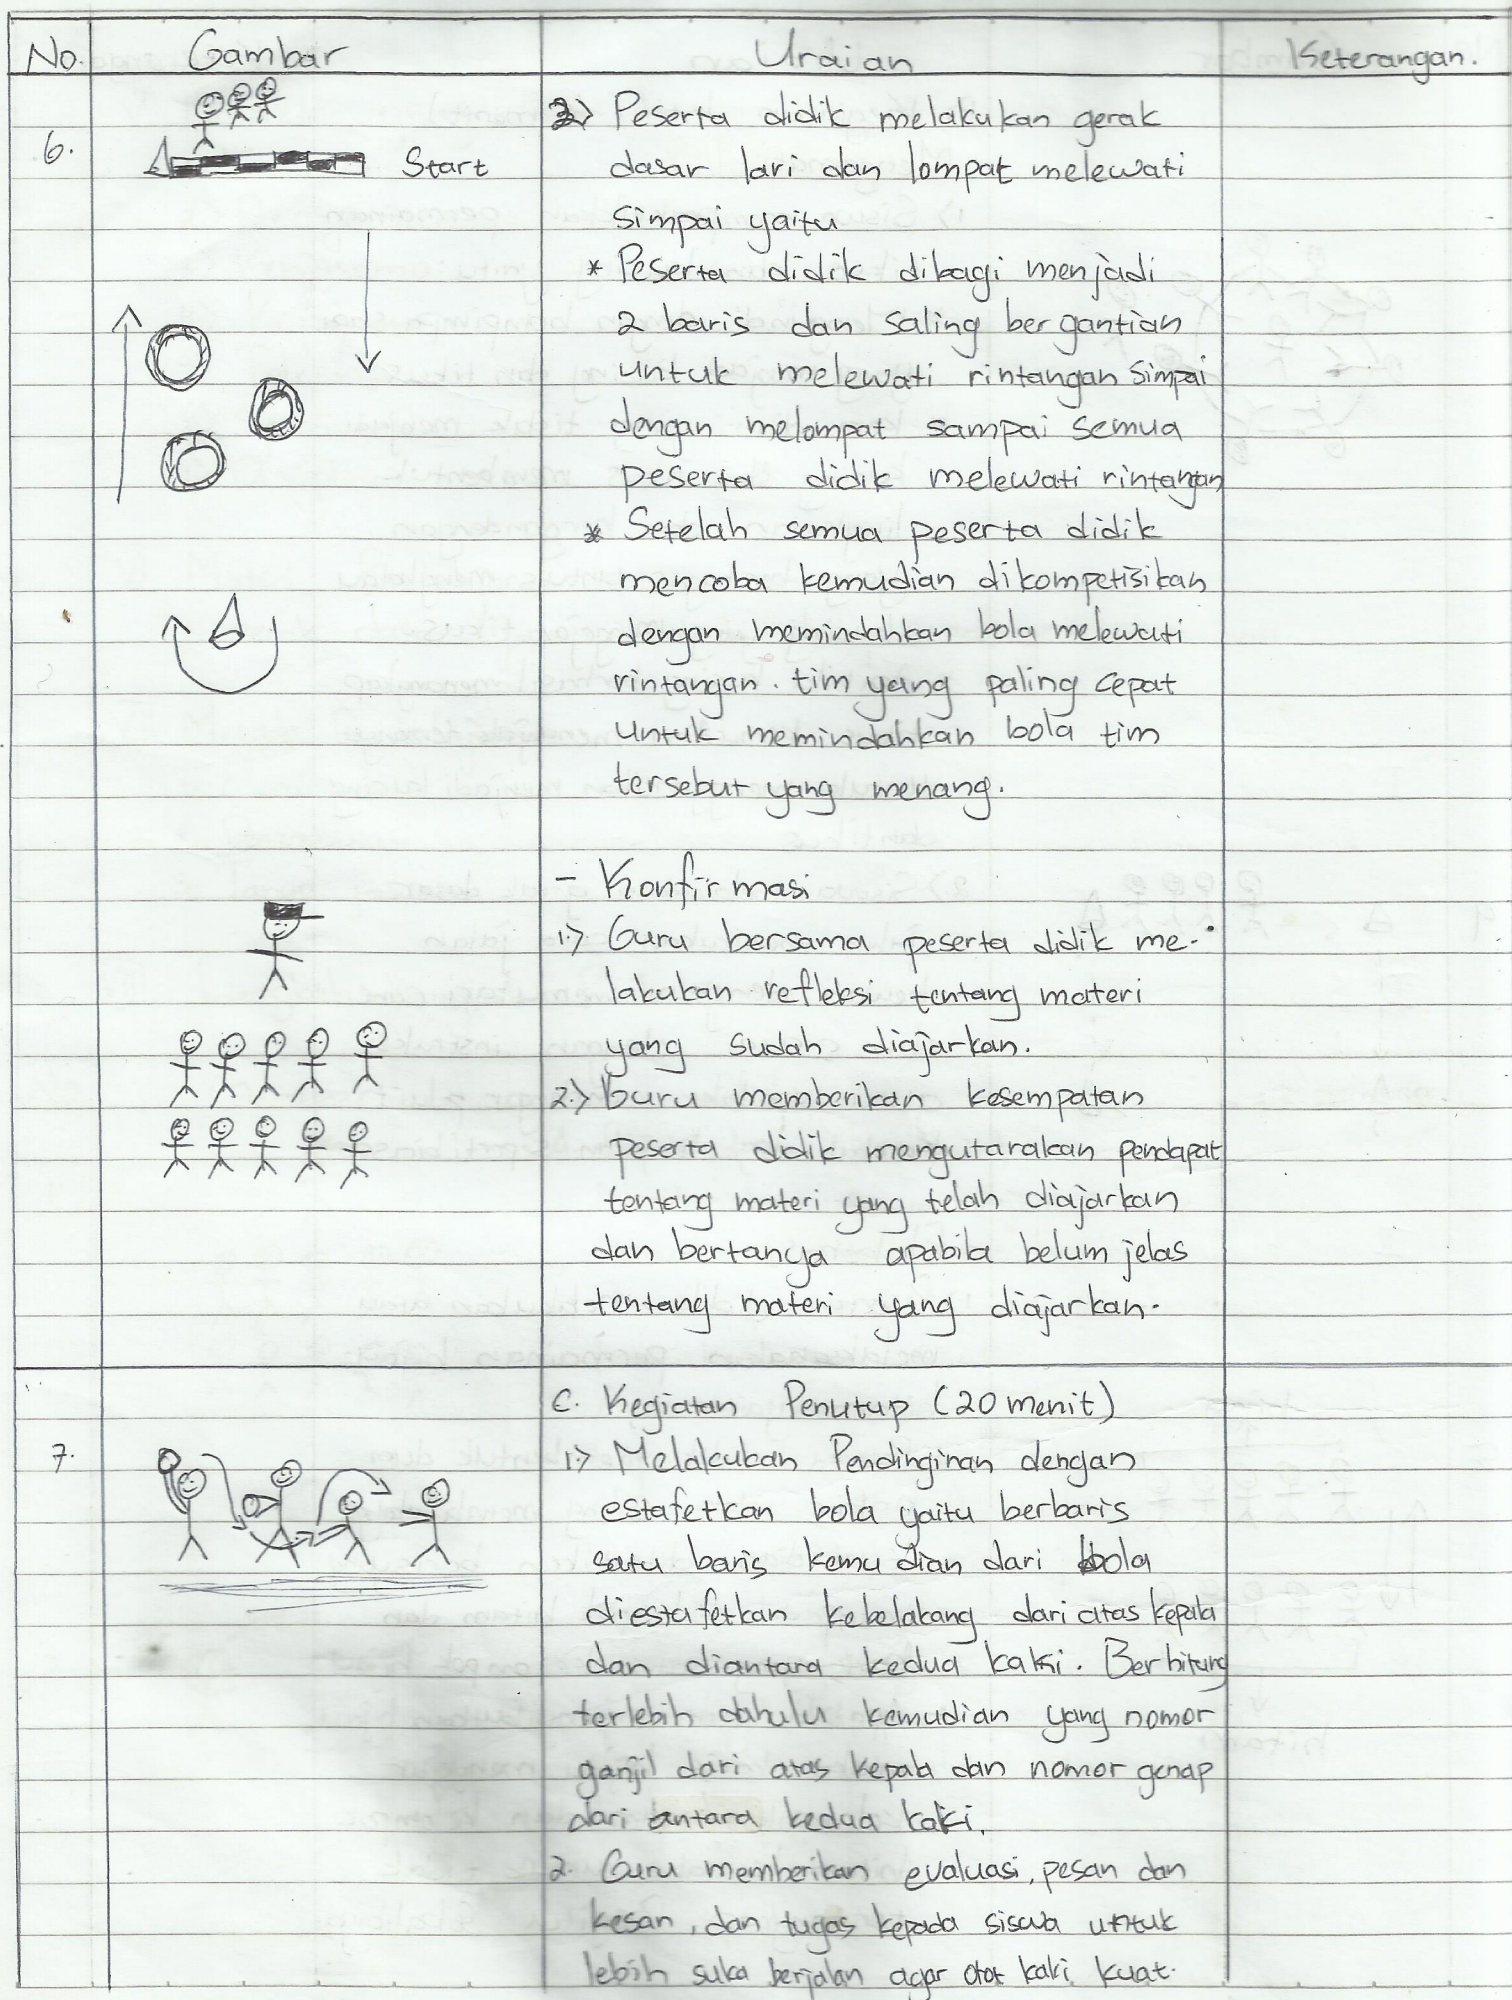 No. Gambar Uraian Keterangan.
6.
Start
3) Peserta didik melakukan gerak
dasar lari dan lompat melewati
simpai yaitu
* Peserta didik dibagi menjadi
2 baris dan saling bergantian
untuk melewati rintangan simpai
dengan melompat sampai semua
peserta didik melewati rintangan
* Setelah semua peserta didik
mencoba kemudian dikompetisikan
dengan memindahkan bola melewati
rintangan. tim yang paling cepat
untuk memindahkan bola tim
tersebut yang menang.
- Konfirmasi
1.) Guru bersama peserta didik me-
lakukan refleksi tentang materi
yang sudah diajarkan.
2.) Guru memberikan kesempatan
peserta didik mengutarakan pendapat
tentang materi yang telah diajarkan
dan bertanya apabila belum jelas
tentang materi yang diajarkan.
7.
C. Kegiatan Penutup (20 menit)
1.) Melakukan Pendinginan dengan
estafetkan bola yaitu berbaris
satu baris kemudian dari bola
diestafetkan kebelakang dari atas kepala
dan diantara kedua kaki. Berhitung
terlebih dahulu kemudian yang nomor
ganjil dari atas kepala dan nomor genap
dari antara kedua kaki.
2. Guru memberikan evaluasi, pesan dan
kesan, dan tugas kepada siswa untuk
lebih suka berjalan agar otot kaki kuat.